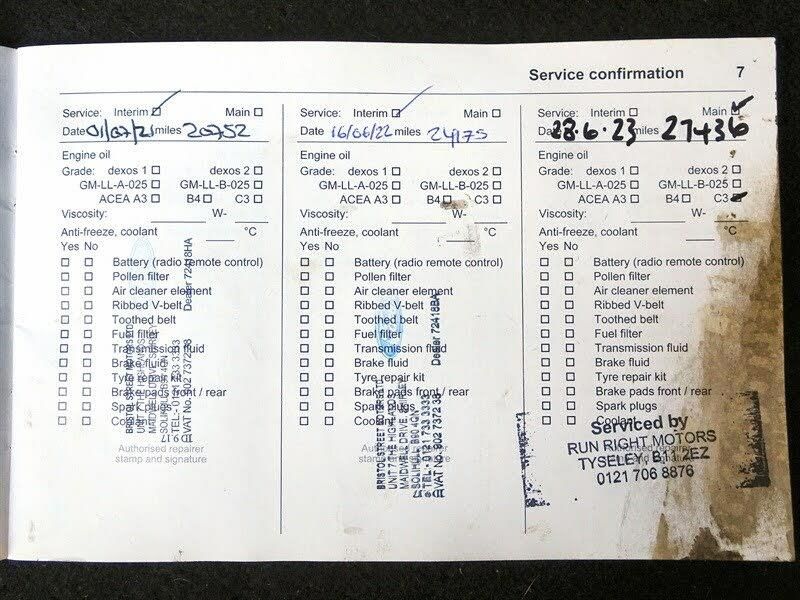 Service confirmation 7
Service: Interim Main
Date 01/07/21 miles 20752
Engine oil
Grade: dexos 1 dexos 2
GM-LL-A-025 GM-LL-B-025
ACEA A3 B4 C3
Viscosity: W-
Anti-freeze, coolant °C
Yes No
Battery (radio remote control)
Pollen filter
Air cleaner element
Ribbed V-belt
Toothed belt
Fuel filter
Transmission fluid
Brake fluid
Tyre repair kit
Brake pads front / rear
Spark plugs
Coolant
Authorised repairer
stamp and signature
BRISTOL STREET MOTORS LTD
SOLIHULL B90 4GN
TEL:- 0121 733 3333
VAT No. 902 7372 38 Dealer 72418HA
ID9.17
Service: Interim Main
Date 16/06/22 miles 24175
Engine oil
Grade: dexos 1 dexos 2
GM-LL-A-025 GM-LL-B-025
ACEA A3 B4 C3
Viscosity: W-
Anti-freeze, coolant °C
Yes No
Battery (radio remote control)
Pollen filter
Air cleaner element
Ribbed V-belt
Toothed belt
Fuel filter
Transmission fluid
Brake fluid
Tyre repair kit
Brake pads front / rear
Spark plugs
Coolant
Authorised repairer
stamp and signature
BRISTOL STREET MOTORS
MAIDWELL DRIVE
SOLIHULL B90 4QN
TEL:- 0121 733 3333
VAT No. 902 7372 38 Dealer 72418BA
Service: Interim Main
Date 28.6.23 miles 27436
Engine oil
Grade: dexos 1 dexos 2
GM-LL-A-025 GM-LL-B-025
ACEA A3 B4 C3
Viscosity: W-
Anti-freeze, coolant °C
Yes No
Battery (radio remote control)
Pollen filter
Air cleaner element
Ribbed V-belt
Toothed belt
Fuel filter
Transmission fluid
Brake fluid
Tyre repair kit
Brake pads front / rear
Spark plugs
Coolant
Serviced by
RUN RIGHT MOTORS
TYSELEY, B11 2EZ
0121 706 8876